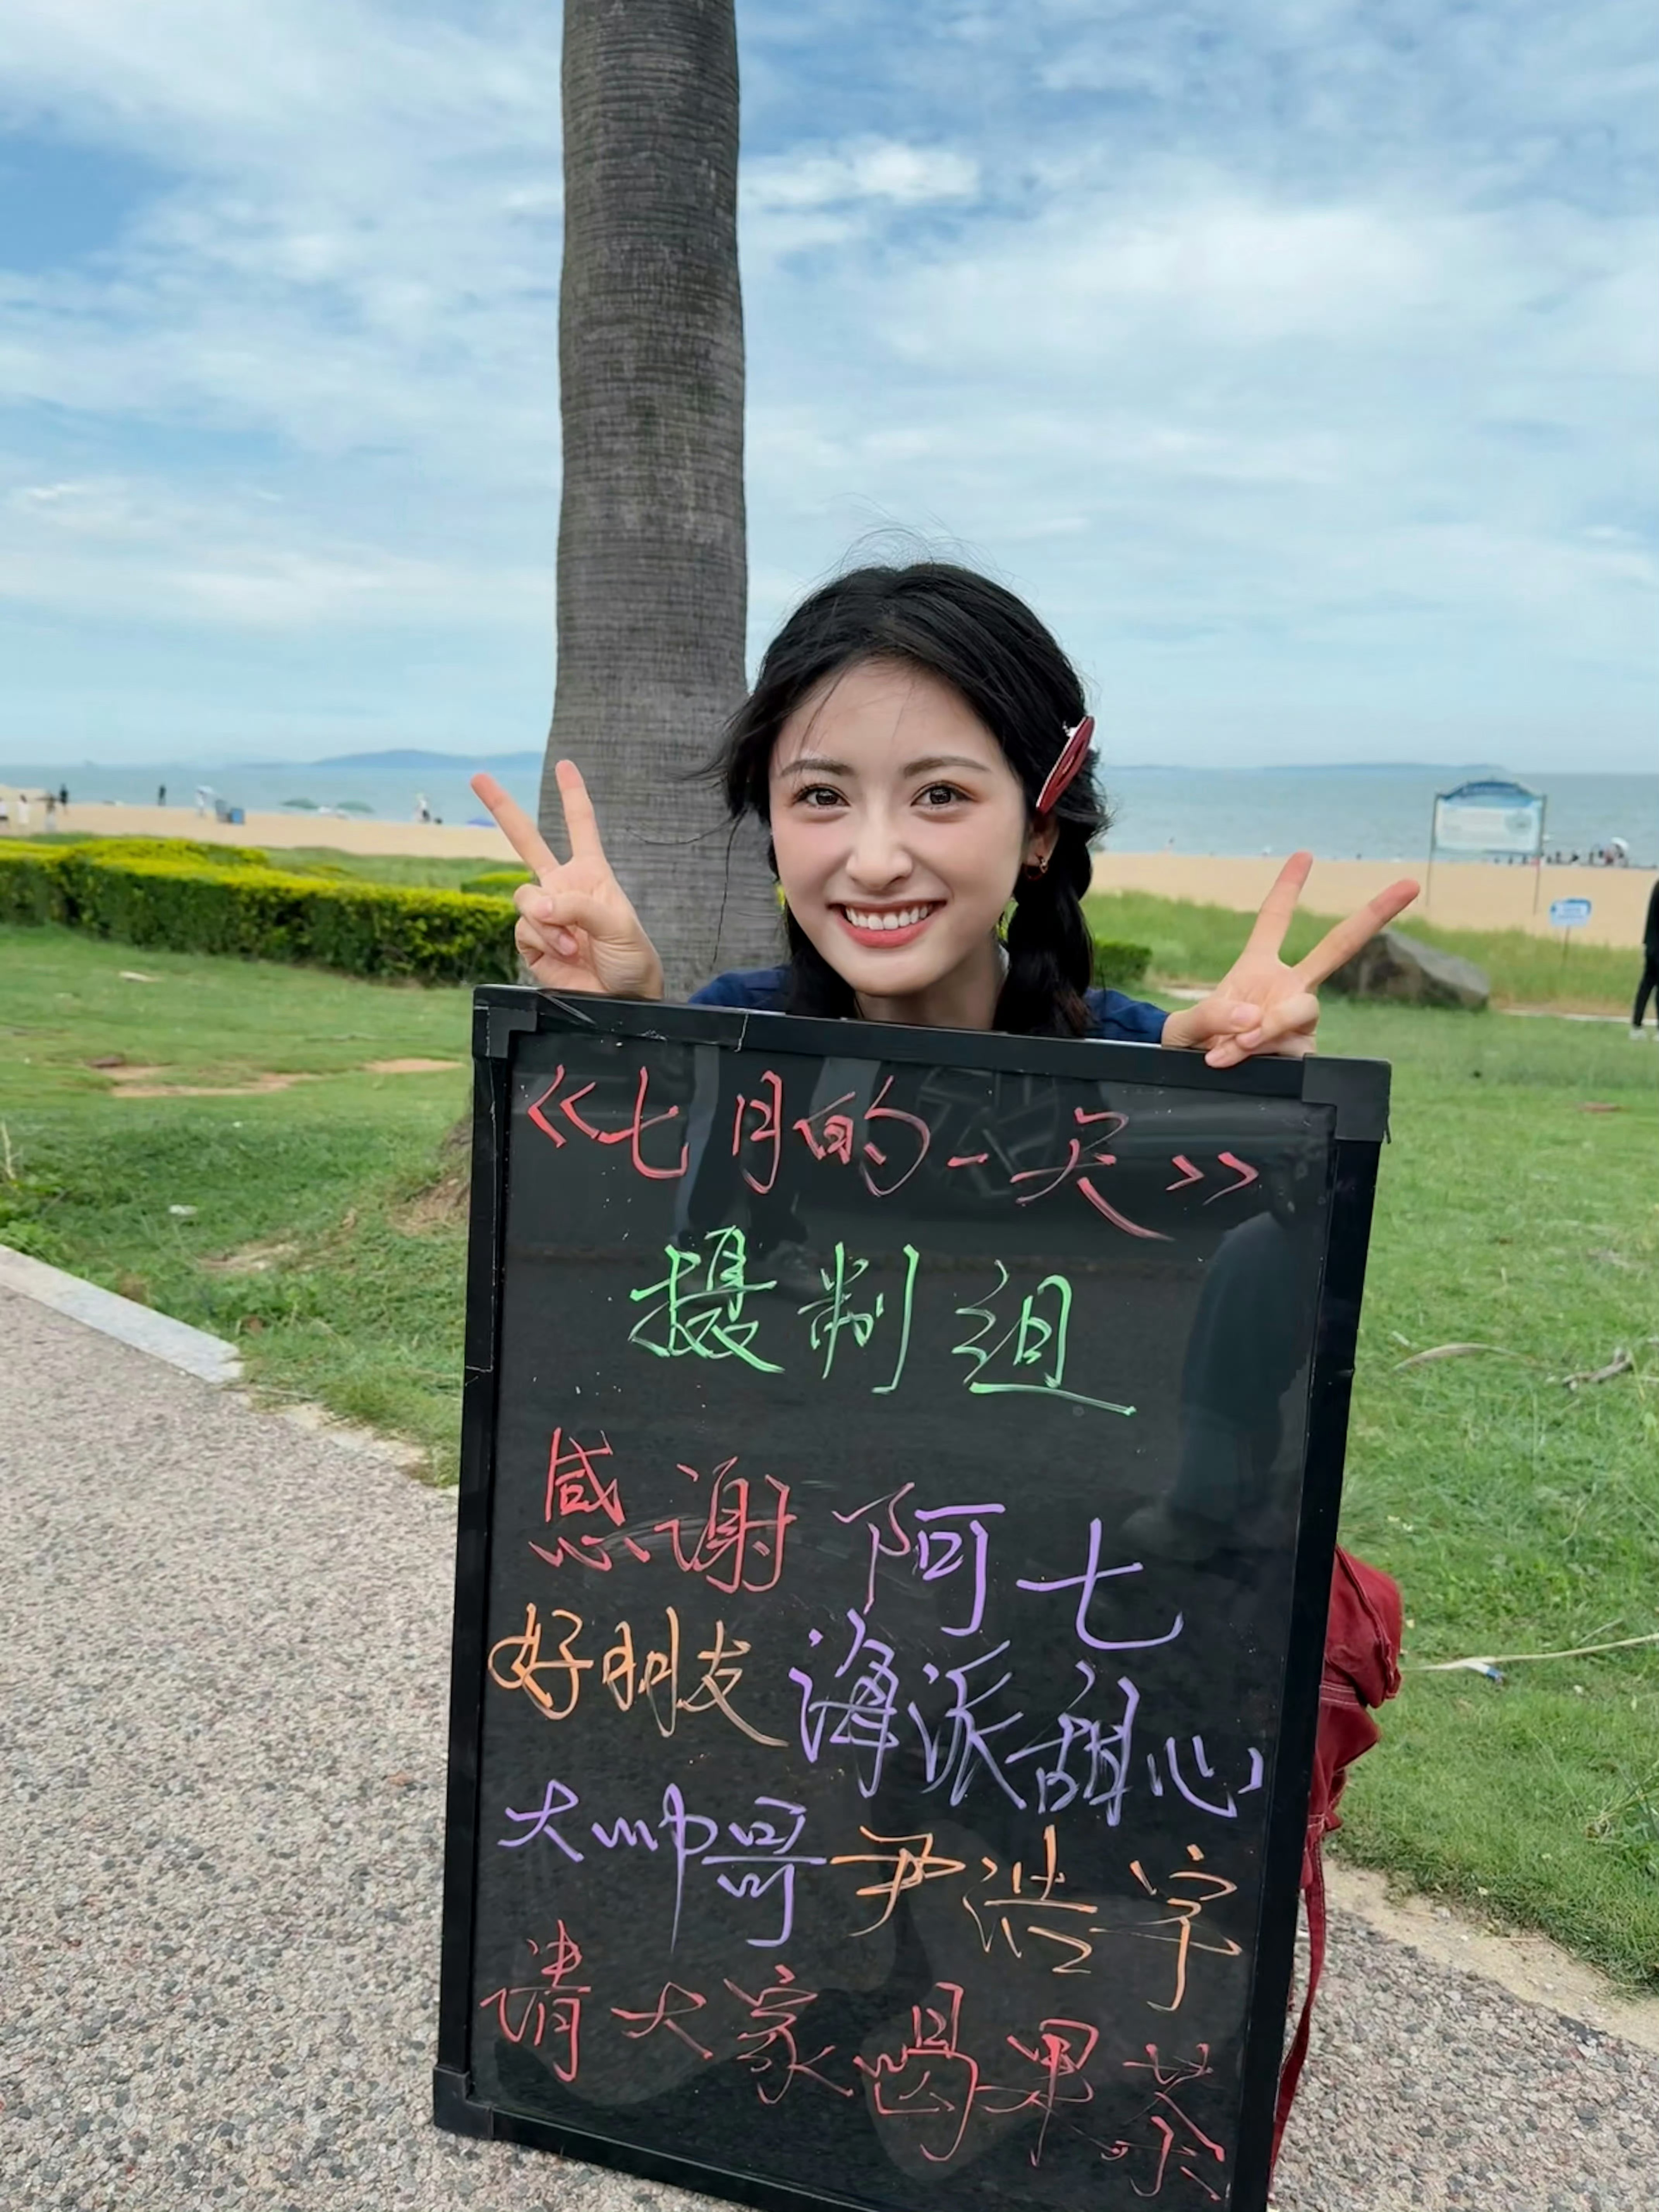 《七月的一天》
摄制组
感谢阿七
好朋友海派甜心
大帅哥尹浩宇
请大家喝果茶